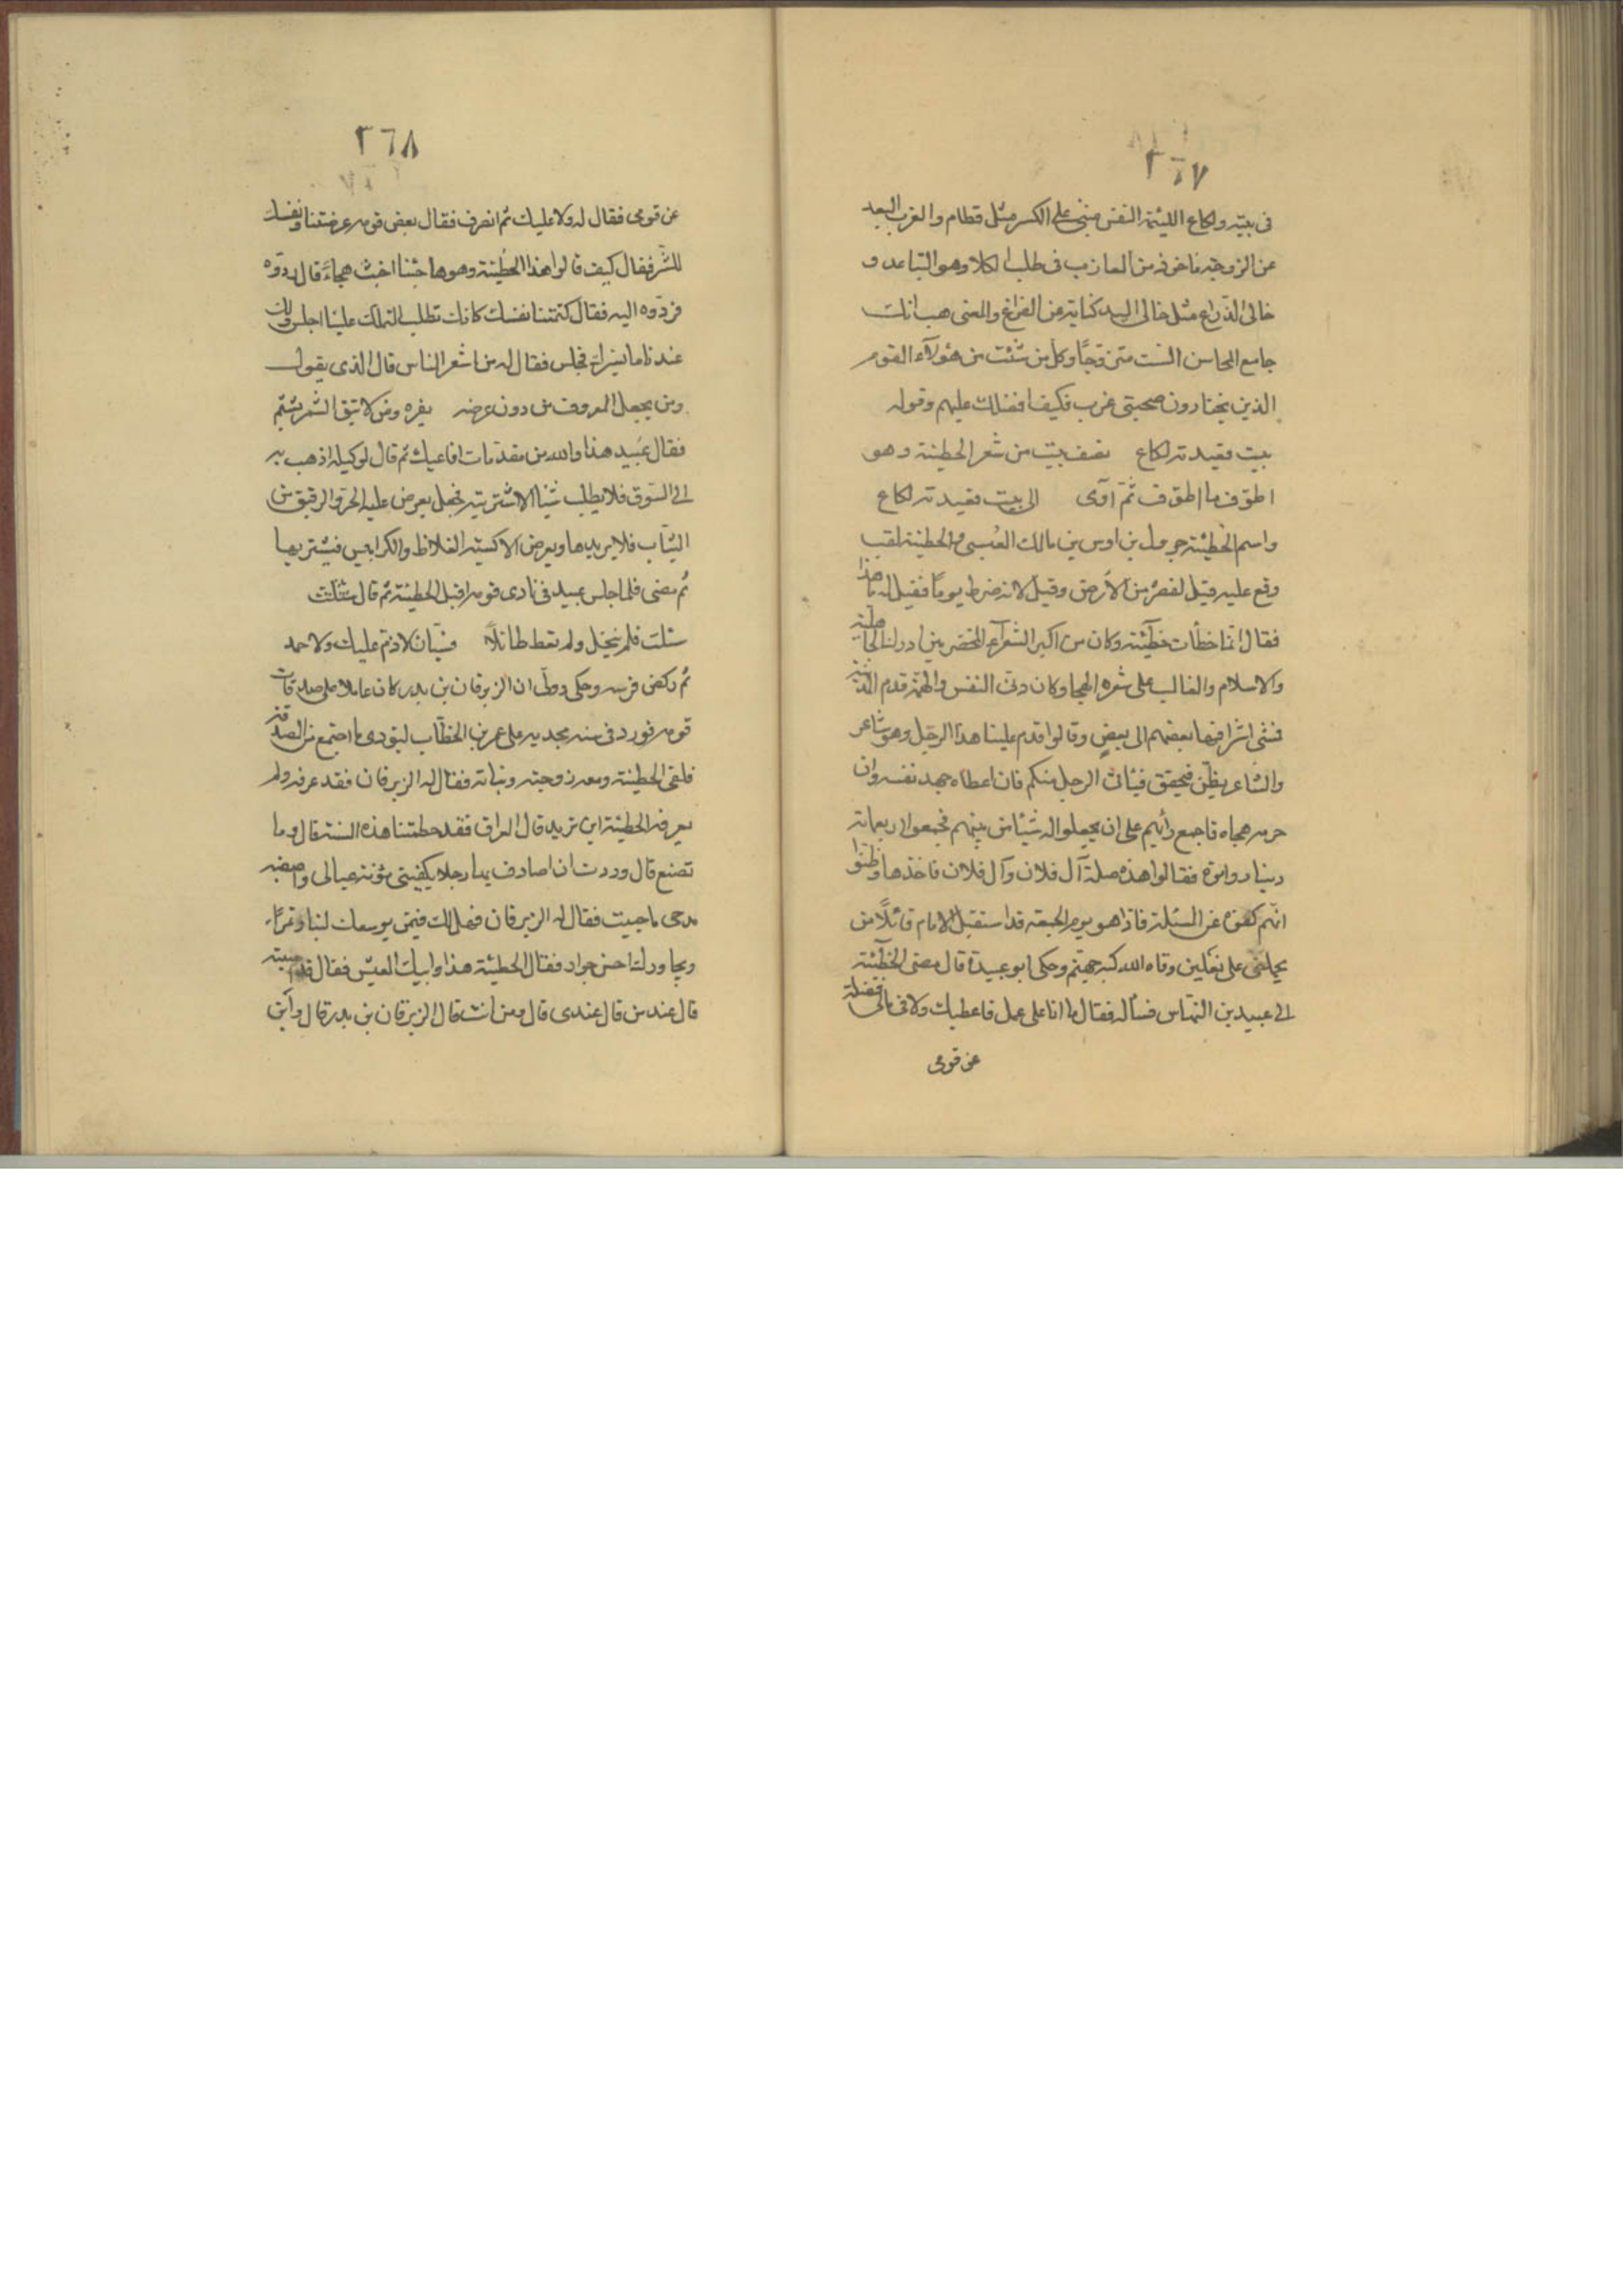 ٢٦٧
فى بيته ولكاع اللئيمة النفس مبنى على الكسر مثل قطام والعزب البعيد
عن الزوجة ماخوذ من العازب فى طلب الكلا وهو التباعد و
خالى الذراع مثل خالى اليد كناية عن الفراغ والمعنى هب انك
جامع المحاسن الست متزوجًا وكل من شئت من هؤلآء القوم
الذين يختارون صحبتى عزب فكيف افضلك عليهم وقوله
بيت قعيدته لكاع نصف بيت من شعر الحطيئة وهو
اطوف ما اطوف ثمّ آوى الى بيت قعيدته لكاع
واسم الحطيئة جرول بن اوس بن مالك العبسى والحطيئة لقب
وقع عليه قيل لقصره من الأرض وقيل لانه ضرط يومًا فقيل له ما هذا
فقال انّما خطأت حطيئة وكان من اكبر الشعرآء المخضرمين ادرك الجاهلية
والاسلام والغالب على شعره الهجا وكان دنى النفس والهمة قدم المدينة
فمشى اشرافها بعضهم الى بعض وقالوا قدم علينا هذا الرجل وهو شاعر
والشاعر يظن فيحقق فيأتى الرجل منكم فان اعطاه جهد نفسه وان
حرمه هجاه فاجمع رأيهم على ان يجعلوا له شيئا من بينهم فجمعوا اربعماية
دينار واتوه فقالوا هذه صلة آل فلان وآل فلان فاخذها وظنوا
انهم كفوه عن المسئلة فاذا هو يوم الجمعة قد استقبل الامام قائلًا من
يحملنى على نعلين وقاه الله كبة جهنم وحكى ابو عبيدة قال مضى الحطيئة
الى عبيد بن النهاس فسأله فقال ما انا على عمل فاعطيك ولا فى مالى فضلة
عن قومى
٢٦٨
عن قومى فقال له ولا عليك ثم انصرف فقال بعض قومه عرضتنا ونفسك
للشر فقال كيف قالوا هذا الحطيئة وهو هاجينا اخبث هجاءً قال ردّوه
فردّوه اليه فقال كتمتنا نفسك كانك تطلب العلل علينا اجلس ولك
عندنا ما يسرك فجلس فقال له من اشعر الناس قال الذى يقول
ومن يجعل المعروف من دون عرضه يفره ومن لا يتق الشتم يشتم
فقال عبيد هذا والله من مقدّمات افاعيك ثم قال لوكيله اذهب به
الى السّوق فلا يطلب شيئا الا اشتريته فجعل يعرض عليه الخز والرقيق من
الثياب فلا يريدها ويعرض الاكسية الغلاظ والكرابيس فيشتريها
ثم مضى فلما جلس عبيد فى نادى قومه اقبل الحطيئة ثم قال
سئلت فلم تبخل ولم تعط طائلاً فسيّان لا ذم عليك ولا حمد
ثم ركض فرسه وحكى ان الزبرقان بن بدر كان عاملا على صدقات
قومه فورد فى سنة مجدبة على عمر بن الخطّاب ليؤدى ما اجتمع من الصدقة
فلقى الحطيئة ومعه زوجته وبناته فقال له الزبرقان فقد عرفه ولم
يعرفه الحطيئة اين تريد قال العراق فقد حطمتنا هذه السنة قال وما
تصنع قال وددت ان اصادف بها رجلا يكفينى مؤنة عيالى واصفيه
مدحى ما حييت فقال له الزبرقان فهل لك فيمن يوسعك لبنا وتمرًا
ويجاورك احسن جوار فقال الحطيئة هذا وابيك العيش فقال قد اصبته
قال عند من قال عندى قال ومن انت قال الزبرقان بن بدر قال واين